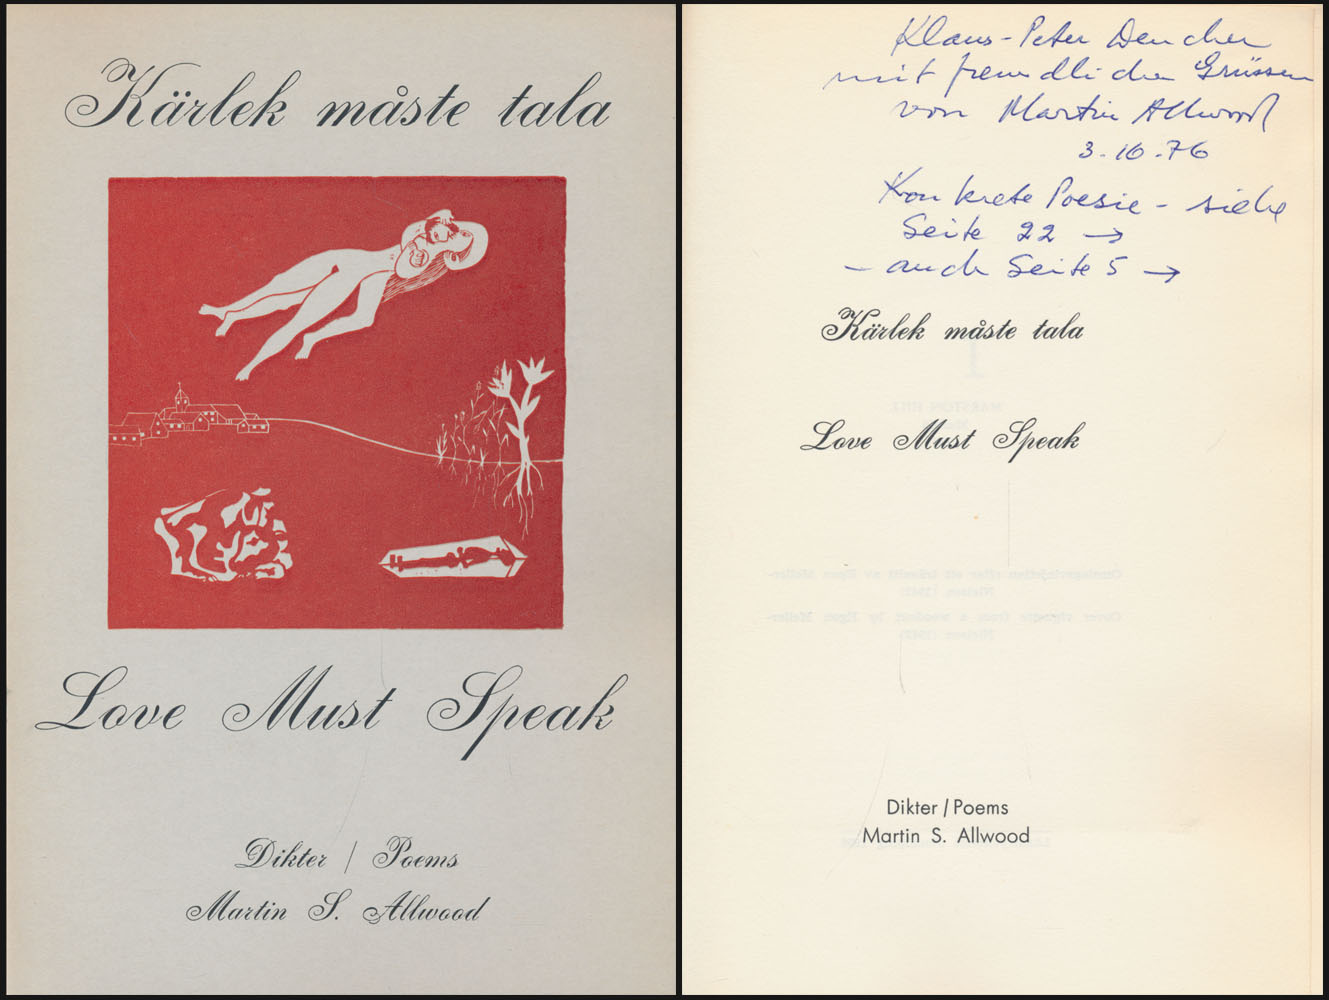 Kärlek måste tala
Love Must Speak
Dikter / Poems
Martin S. Allwood
Klaus-Peter Dencker
mit freundlichen Grüssen
von Martin Allwood
3.10.76
Konkrete Poesie - siehe
Seite 22 →
- auch Seite 5 →
Kärlek måste tala
Love Must Speak
Dikter / Poems
Martin S. Allwood